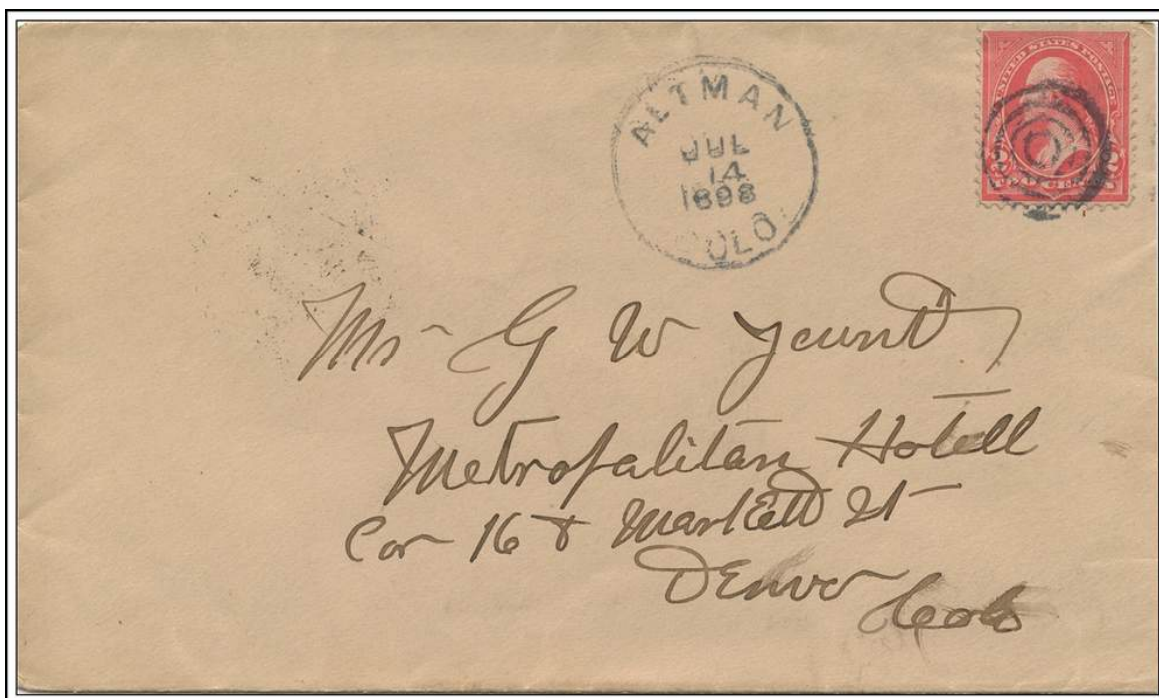 ALTMAN
JUL
14
1898
COLO.
UNITED STATES POSTAGE
2 2
TWO CENTS
Mr G W Yount
Metropolitan Hotell
Cor 16 & Markett St
Denver
Colo